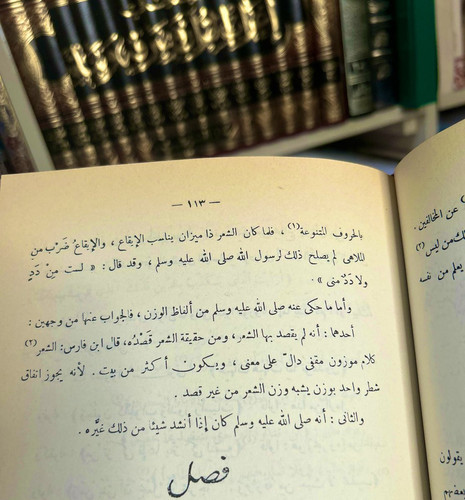 — ١١٣ —
بالحروف المتنوعة(١) ، فلما كان الشعر ذا ميزان يناسب الإيقاع ، والإيقاعُ ضَرْب من
الملاهى لم يصلح ذلك لرسول الله صلى الله عليه وسلم ، وقد قال : « لست مِنْ دَدٍ
ولا دَدٌ منى » .
وأما ما حكى عنه صلى الله عليه وسلم من ألفاظ الوزن ، فالجواب عنها من وجهين :
أحدهما : أنه لم يقصد بها الشعر ، ومن حقيقة الشعر قَصْدُه، قال ابن فارس: الشعر(٢)
كلام موزون مقفى دالّ على معنى ، ويكون أكثر من بيت . لأنه يجوز اتفاق
شطر واحد بوزن يشبه وزن الشعر من غير قصد .
والثانى : أنه صلى الله عليه وسلم كان إذا أنشد شيئا من ذلك غيَّره .
فصل
عن المخالفين .
من ليس(٢)
يعلم من نفسه
يقولون